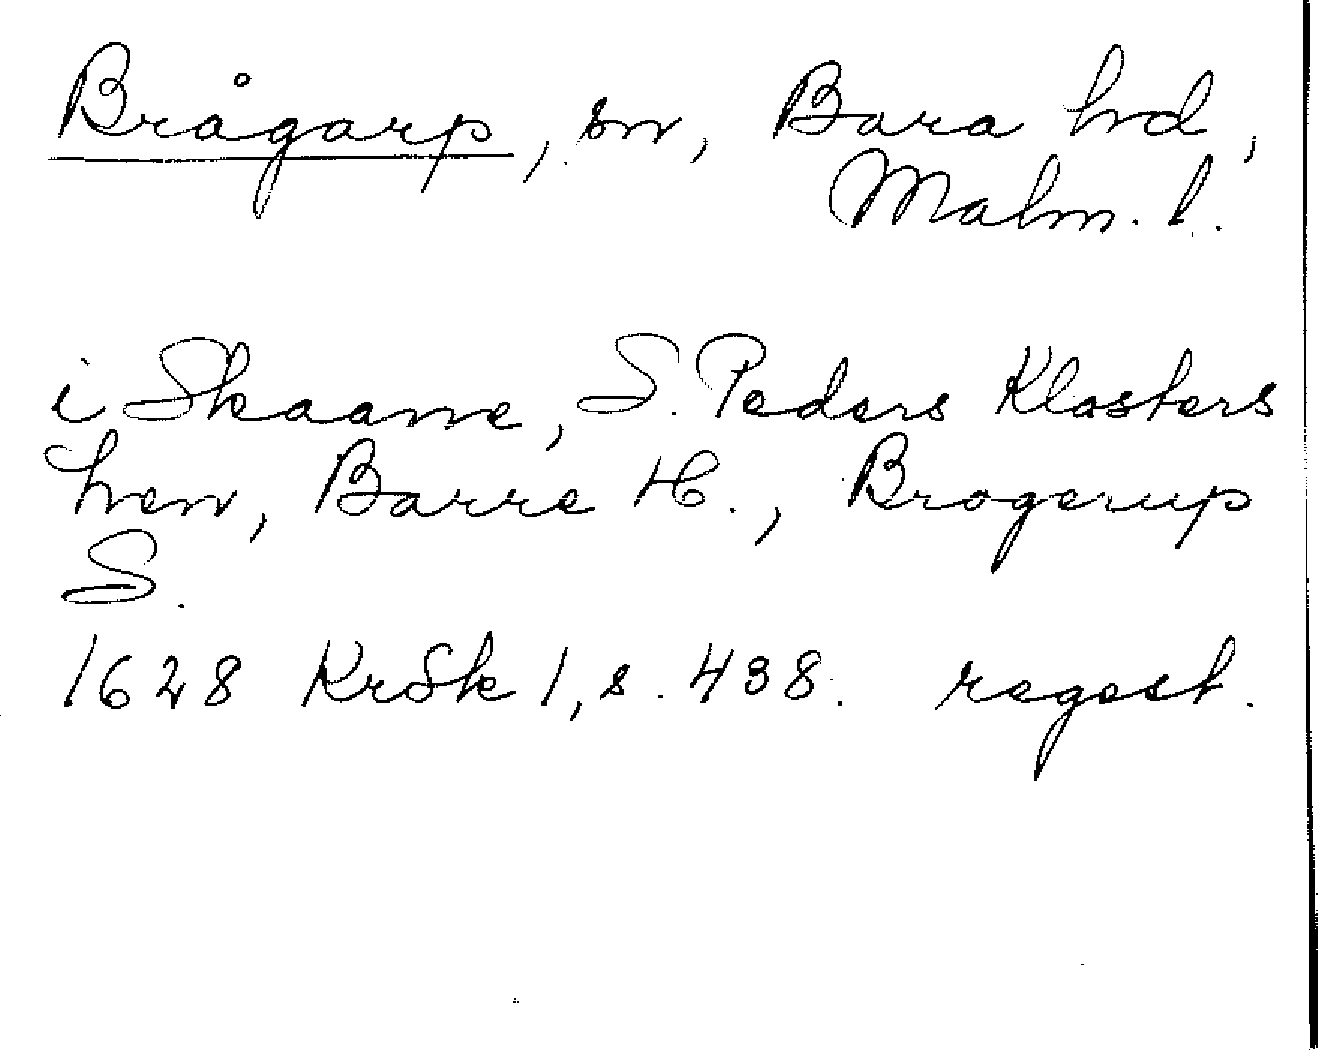 Brågarp, sn, Bara hd,
Malm. l.
i Skaane, S. Peders Klosters
Len, Barre H., Brogerup
S.
1628 KrSk 1, s. 438. regest.